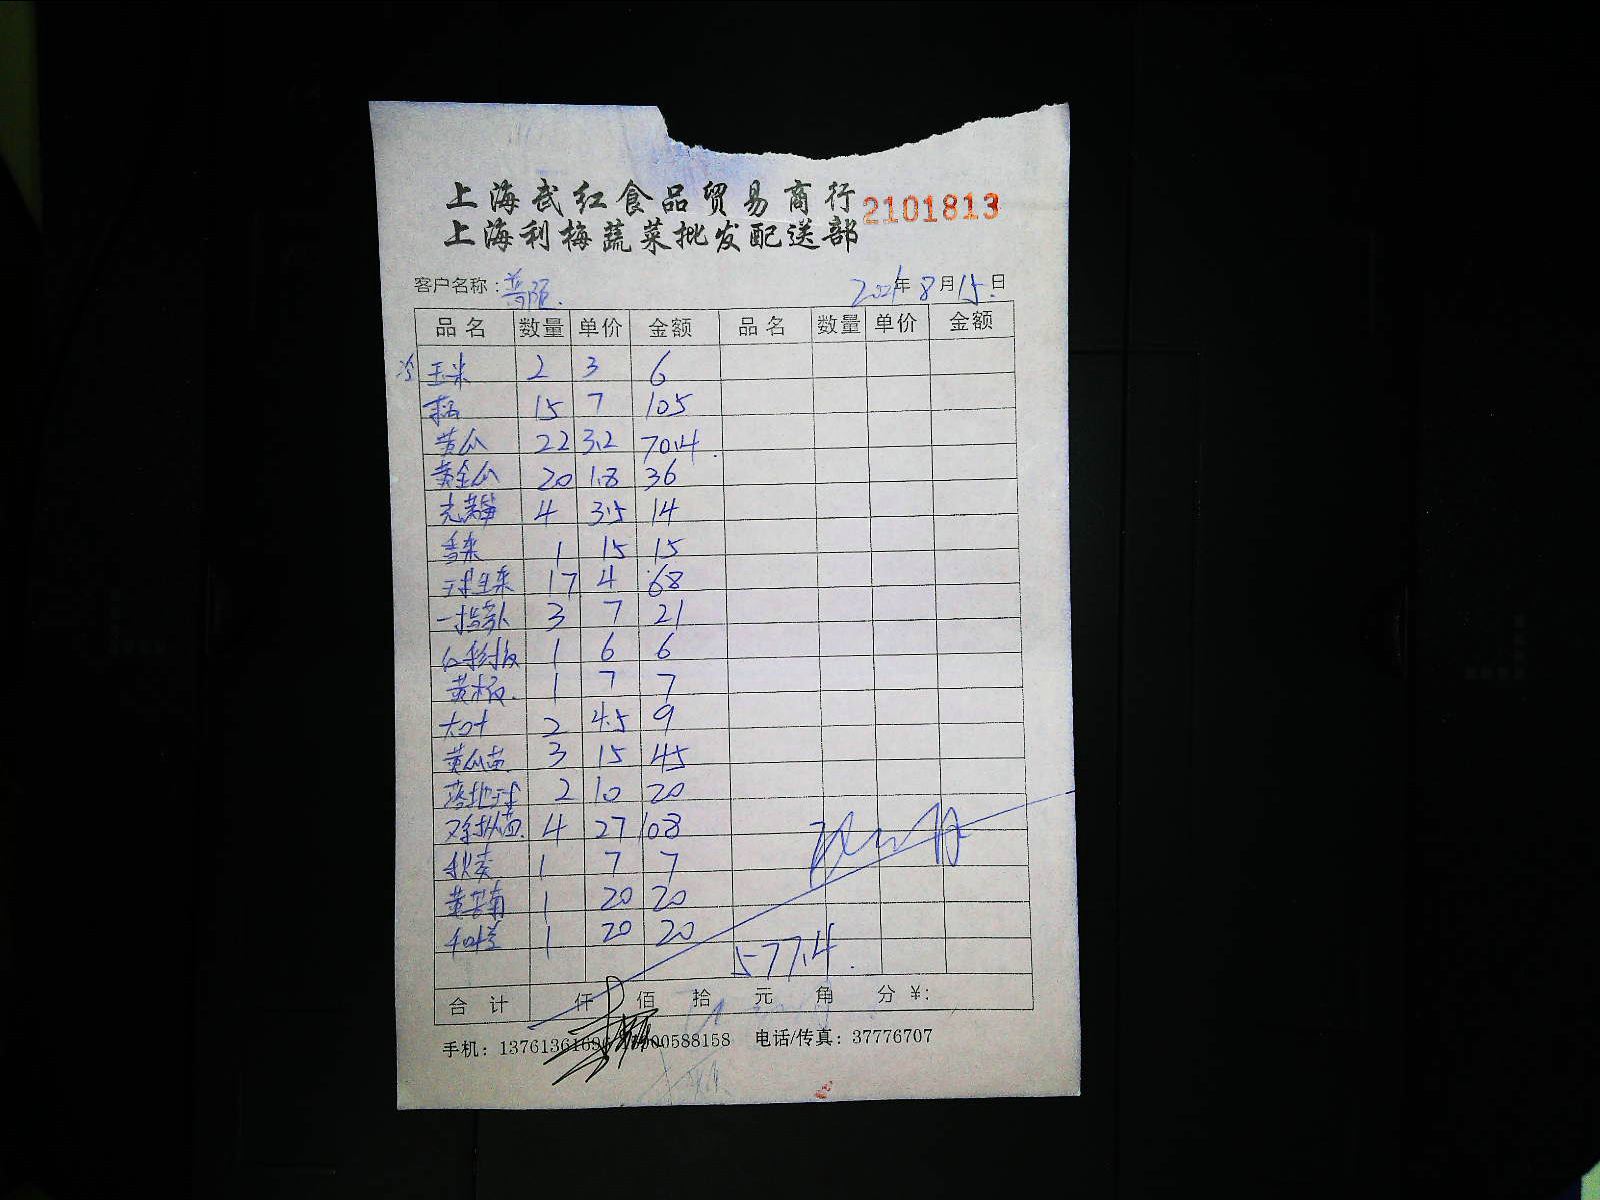 上海武红食品贸易商行
2101813
上海利梅蔬菜批发配送部
客户名称: 2021年8月15日
品名 数量 单价 金额 品名 数量 单价 金额
冷 玉米 2 3 6
15 7 105
黄瓜 22 3.2 70.4
黄金瓜 20 1.8 36
4 3.5 14
香菜 1 15 15
球生菜 17 4 68
3 7 21
1 6 6
黄椒 1 7 7
大叶 2 4.5 9
黄瓜苗 3 15 45
2 10 20
4 27 108
秋葵 1 7 7
黄芊南 1 20 20
1 20 20
577.4
合计 仟 佰 拾 元 角 分 ¥:
手机: 137613616 000588158 电话/传真: 37776707